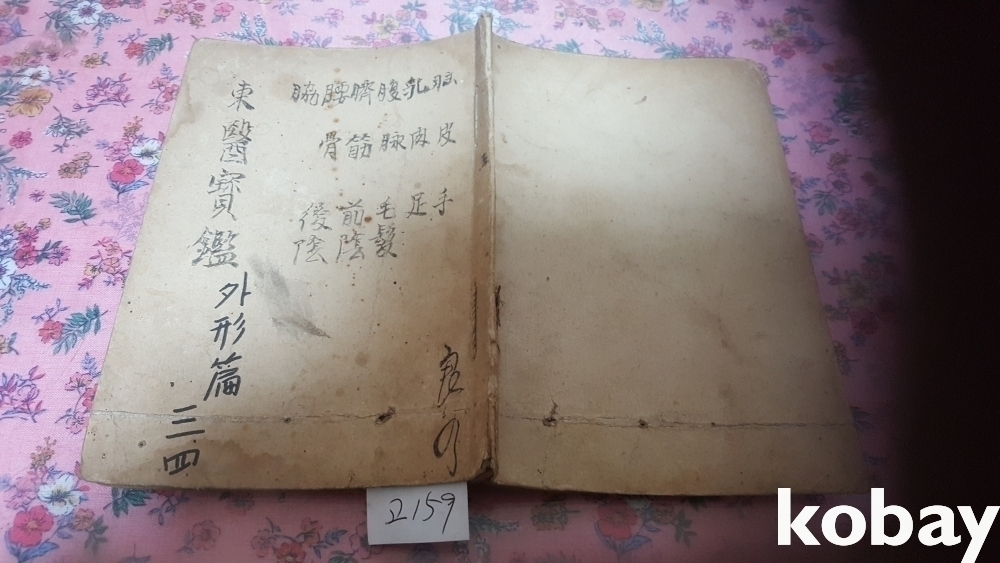 胸乳腹臍腰脇
皮肉脉筋骨
手足毛髮前陰後陰
東醫寶鑑 外形篇 三四
2159
kobay